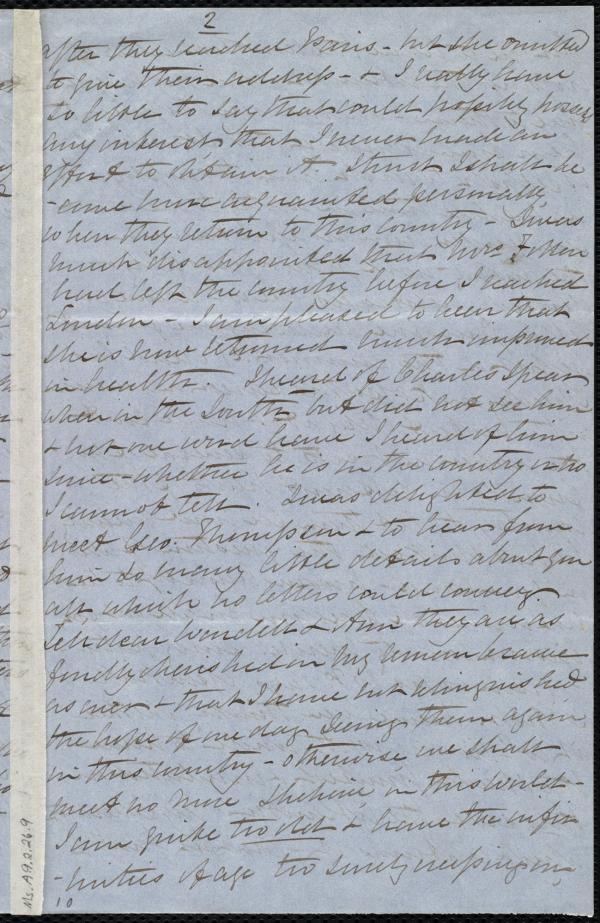 2
after they reached Paris - but she omitted
to give their address - & I really have
so little to say that could possibly possess
any interest that I never made an
effort to obtain it. I trust I shall be
-come more acquainted personally
when they return to this country - I was
much disappointed that Mrs Follen
had left the country before I reached
London - I am pleased to hear that
she is now returned much improved
in health. I heard of Charles Spear
when in the South but did not see him
& not one word have I heard of him
since - whether he is in the country or no
I cannot tell. I was delighted to
meet Geo. Thompson & to hear from
him so many little details about you
all which no letters could convey
Tell dear Wendell & Ann they are as
fondly cherished in my remembrance
as ever & that I have not relinquished
the hope of one day seeing them again
in this country - otherwise we shall
meet no more I believe in this world -
I am quite too old & have the infir
-mities of age too surely creeping on,
10
Ms. A.9.2.26.9